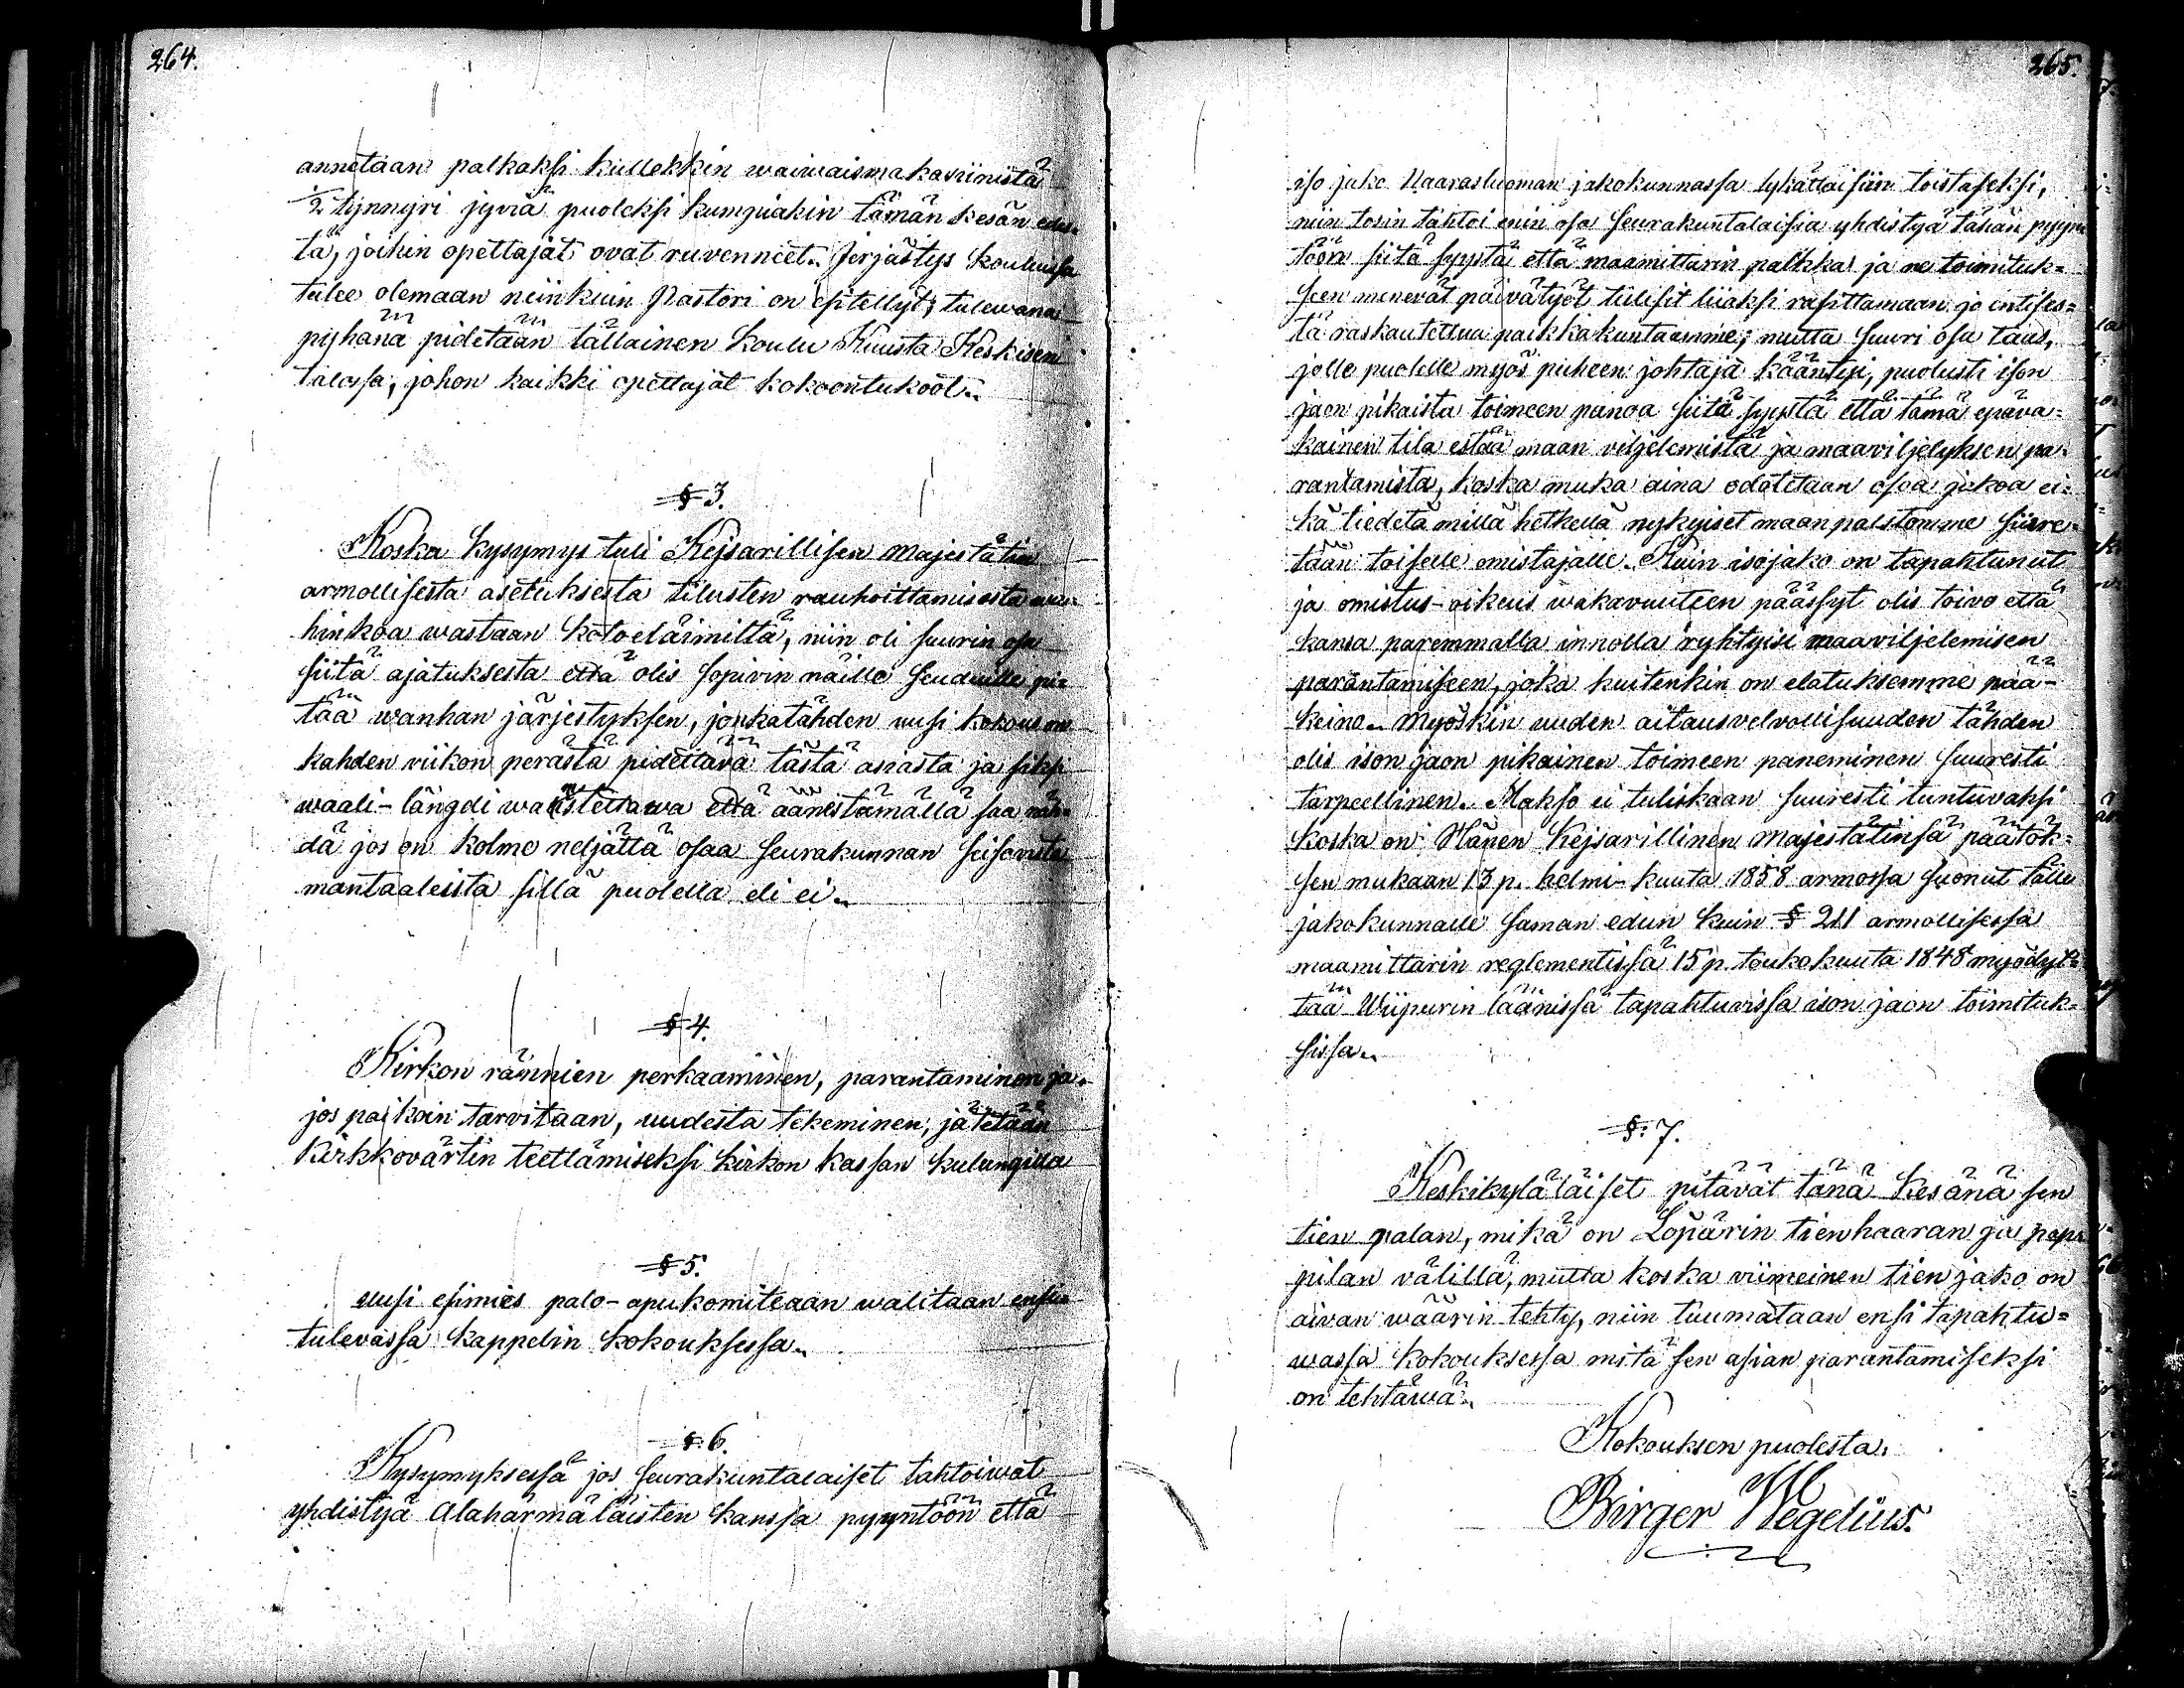 264.
annetaan palkaksi kullekkin waiwaismakasiinista
1/2 tynnyri jyviä puoleksi kumpiakin tämän kesän edes-
tä, joihin opettajat ovat ruvenneet. Jerjästys koulussa
tulee olemaan niinkuin Pastori on esitellyt; tulewana
pyhänä pidetään tällainen koulu Kuusta Keskisen
talossa, johon kaikki opettajat kokoontukoot.
§ 3.
Koska kysymys tuli Kejsarillisen Majestätin
armollisesta asetuksesta tilusten rauhoittamisesta wa-
hinkoa wastaan kotoeläimiltä, niin oli suurin osa
siitä ajatuksesta että olis sopivin näille seuduille pi-
tää wanhan järjestyksen, jonkatähden uusi kokous on
kahden viikon perästä pidettävä tästä asiasta ja siksi
waali-längdi walmistettawa että äänestämällä saa näh-
dä jos on kolme neljättä osaa seurakunnan seisovista
mantaaleista sillä puolella eli ei.
§ 4.
Kirkon rännien perkaaminen, parantaminen ja
jos paikoin tarvitaan, uudesta tekeminen, jätetään
Kirkkovärtin teettämiseksi kirkon kassan kulungilla
§ 5.
uusi esimies palo-apukomiteaan walitaan ensi-
tulevassa kappelin kokouksessa.
§. 6.
Kysymyksessä jos seurakuntalaiset tahtoiwat
yhdistyä Alahärmäläisten kanssa pyyntöön että
265.
iso jako Naarasluoman jakokunnassa lykättäisiin toistaseksi,
niin tosin tahtoi enin osa seurakuntalaisia yhdistyä tähän pyyn
töön siitä syystä että maamittarin palkka ja ne toimituk-
seen menevät päivätyöt tulisit liiaksi rasittamaan jo entises-
tä raskautettua paikkakuntaamme; mutta suuri osa taas,
jolle puolelle myös puheen johtaja kääntyi, puolusti ison
jaon pikaista toimeen panoa siitä syystä että tämä epäva-
kainen tila estää maan viljelemistä ja maaviljelyksen pa-
rantamista, koska muka aina odotetaan osoa jakoa ei-
kä tiedetä millä hetkellä nykyiset maanpalstamme siirre-
tään toiselle omistajalle. Kuin isojako on tapahtunut
ja omistus-oikeus wakavuuteen päässyt olis toivo että
kansa paremmalla innolla ryhtyisi maaviljelemisen
parantamiseen, joka kuitenkin on elatuksemme pää-
keino. Myöskin uuden aitausvelvollisuuden tähden
olis ison jaon pikainen toimeen paneminen suuresti
tarpeellinen. Makso ei tuliskaan suuresti tuntuvaksi
koska on Hänen Kejsarillinen Majestätinsä päätök-
sen mukaan 13 p. helmi-kuuta 1858 armossa suonut tälle
jakokunnalle saman edun kuin § 211 armollisessa
maamittarin reglementissä 15 p. toukokuuta 1848 myödyt-
tää Wiipurin läänissä tapahtuvissa ison jaon toimituk-
sissa.
§. 7.
Keskikyläläiset pitävät tänä kesänä sen
tien palan, mikä on Lopärin tienhaaran ja pap-
pilan välillä, mutta koska viimeinen tien jako on
aivan wäärin tehty, niin tuumataan ensi tapahtu-
wassa kokouksessa mitä sen asian parantamiseksi
on tehtäwä.
Kokouksen puolesta.
Birger Wegelius.